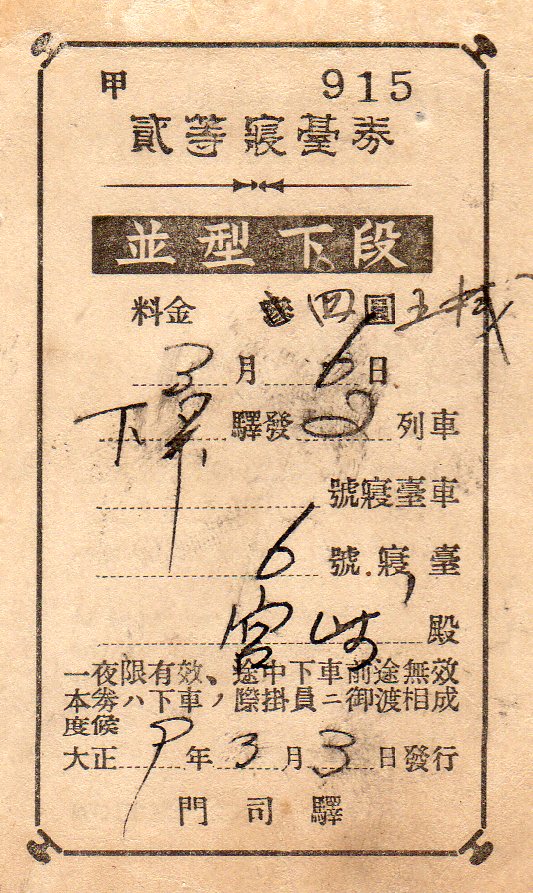 甲 915
貳等寢臺券
並型下段
料金 四圓五
3月6日
下 驛發 8 列車
號寢臺車
6號寢臺
宮崎殿
一夜限有效、途中下車前途無效
本券ハ下車ノ際掛員ニ御渡相成
度候
大正9年3月3日發行
門司驛